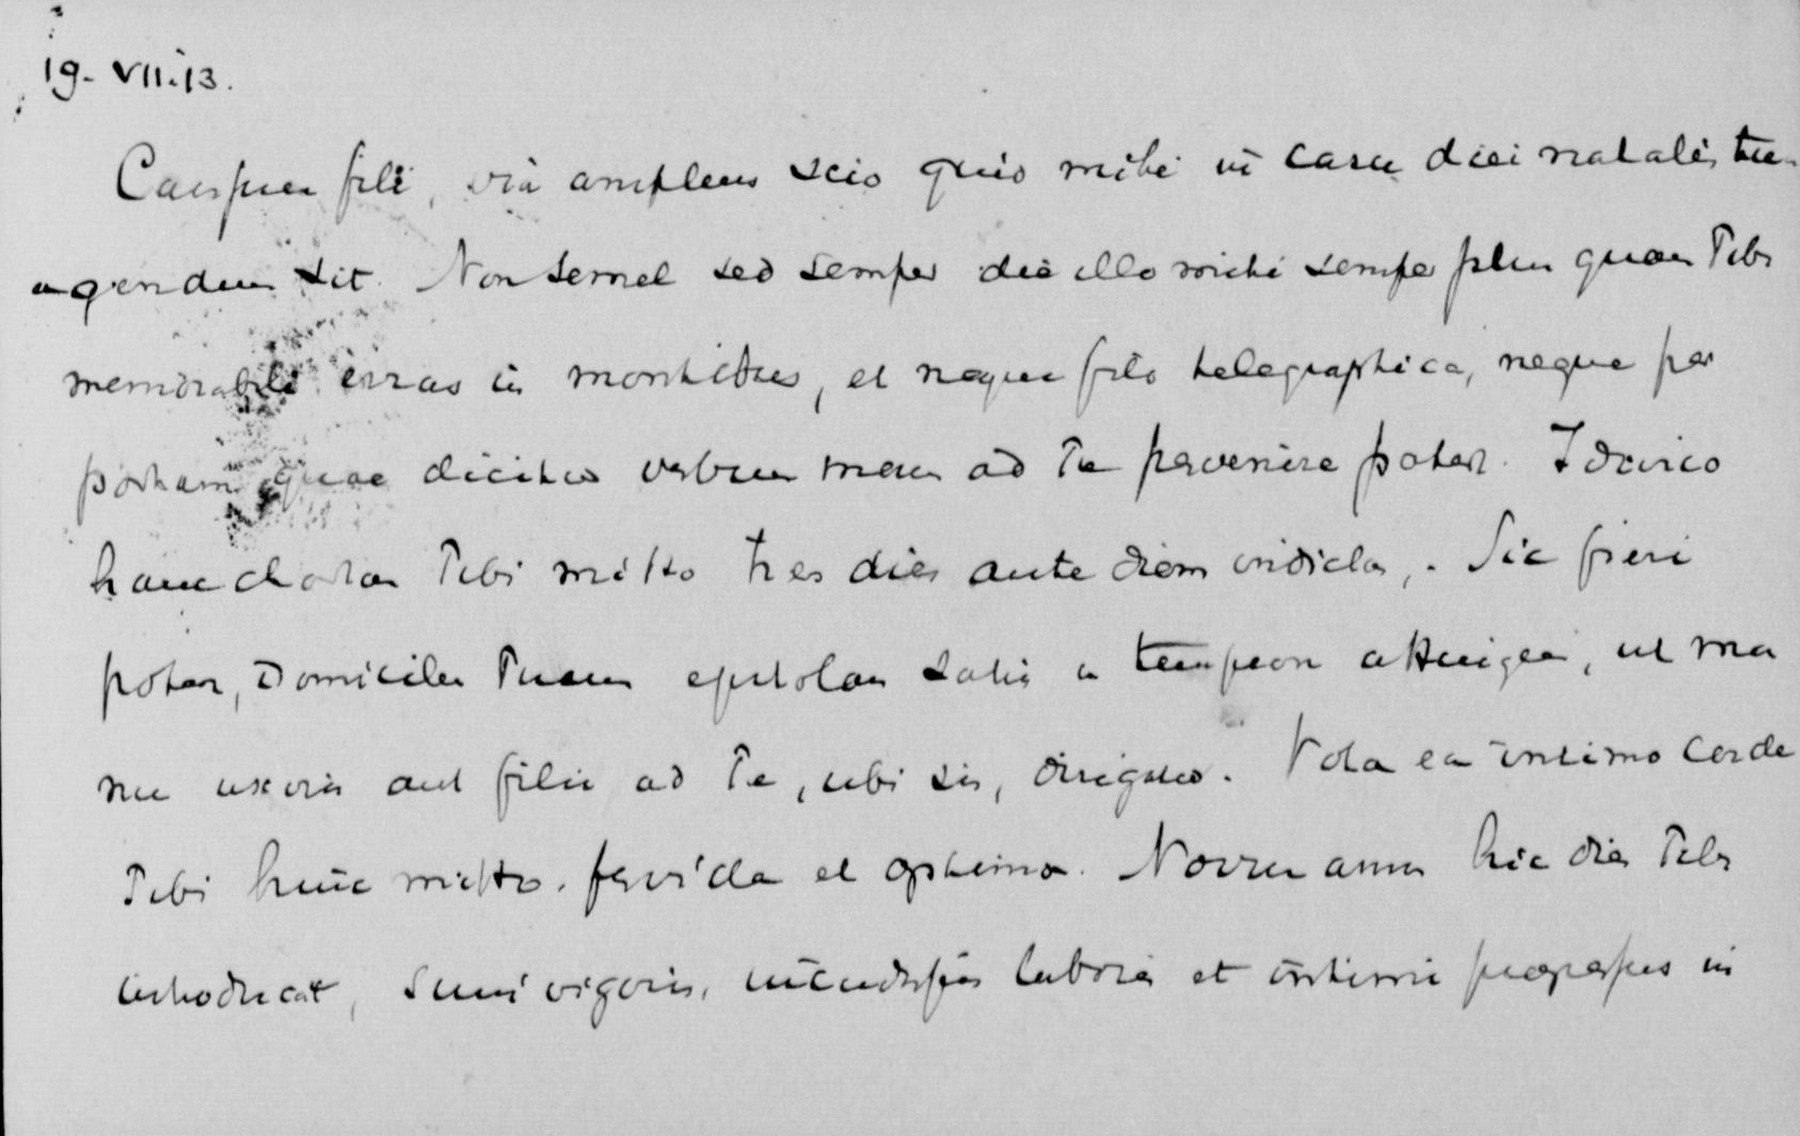 19. VII. 13.
fili, vix amplius scio quid mihi in casu diei natalis tui
agendum sit. Non semel sed semper die illo mihi semper plus quam Tibi
memorabili erras in montibus, et neque filo telegraphico, neque per
postam quae dicitur verbum meum ad Te pervenire potest. Idcirco
hanc chartam Tibi mitto tres dies ante diem. Sic fieri
potest, Tuum epistolam satis a tempore attingere, ut ma
nu uxoris aut filii ad Te, ubi sis, dirigatur. Vota ex intimo corde
Tibi hinc mitto, fervida et optima. Novum annum hic dies Tibi
introducat, vigoris, laboris et intimi progressus in